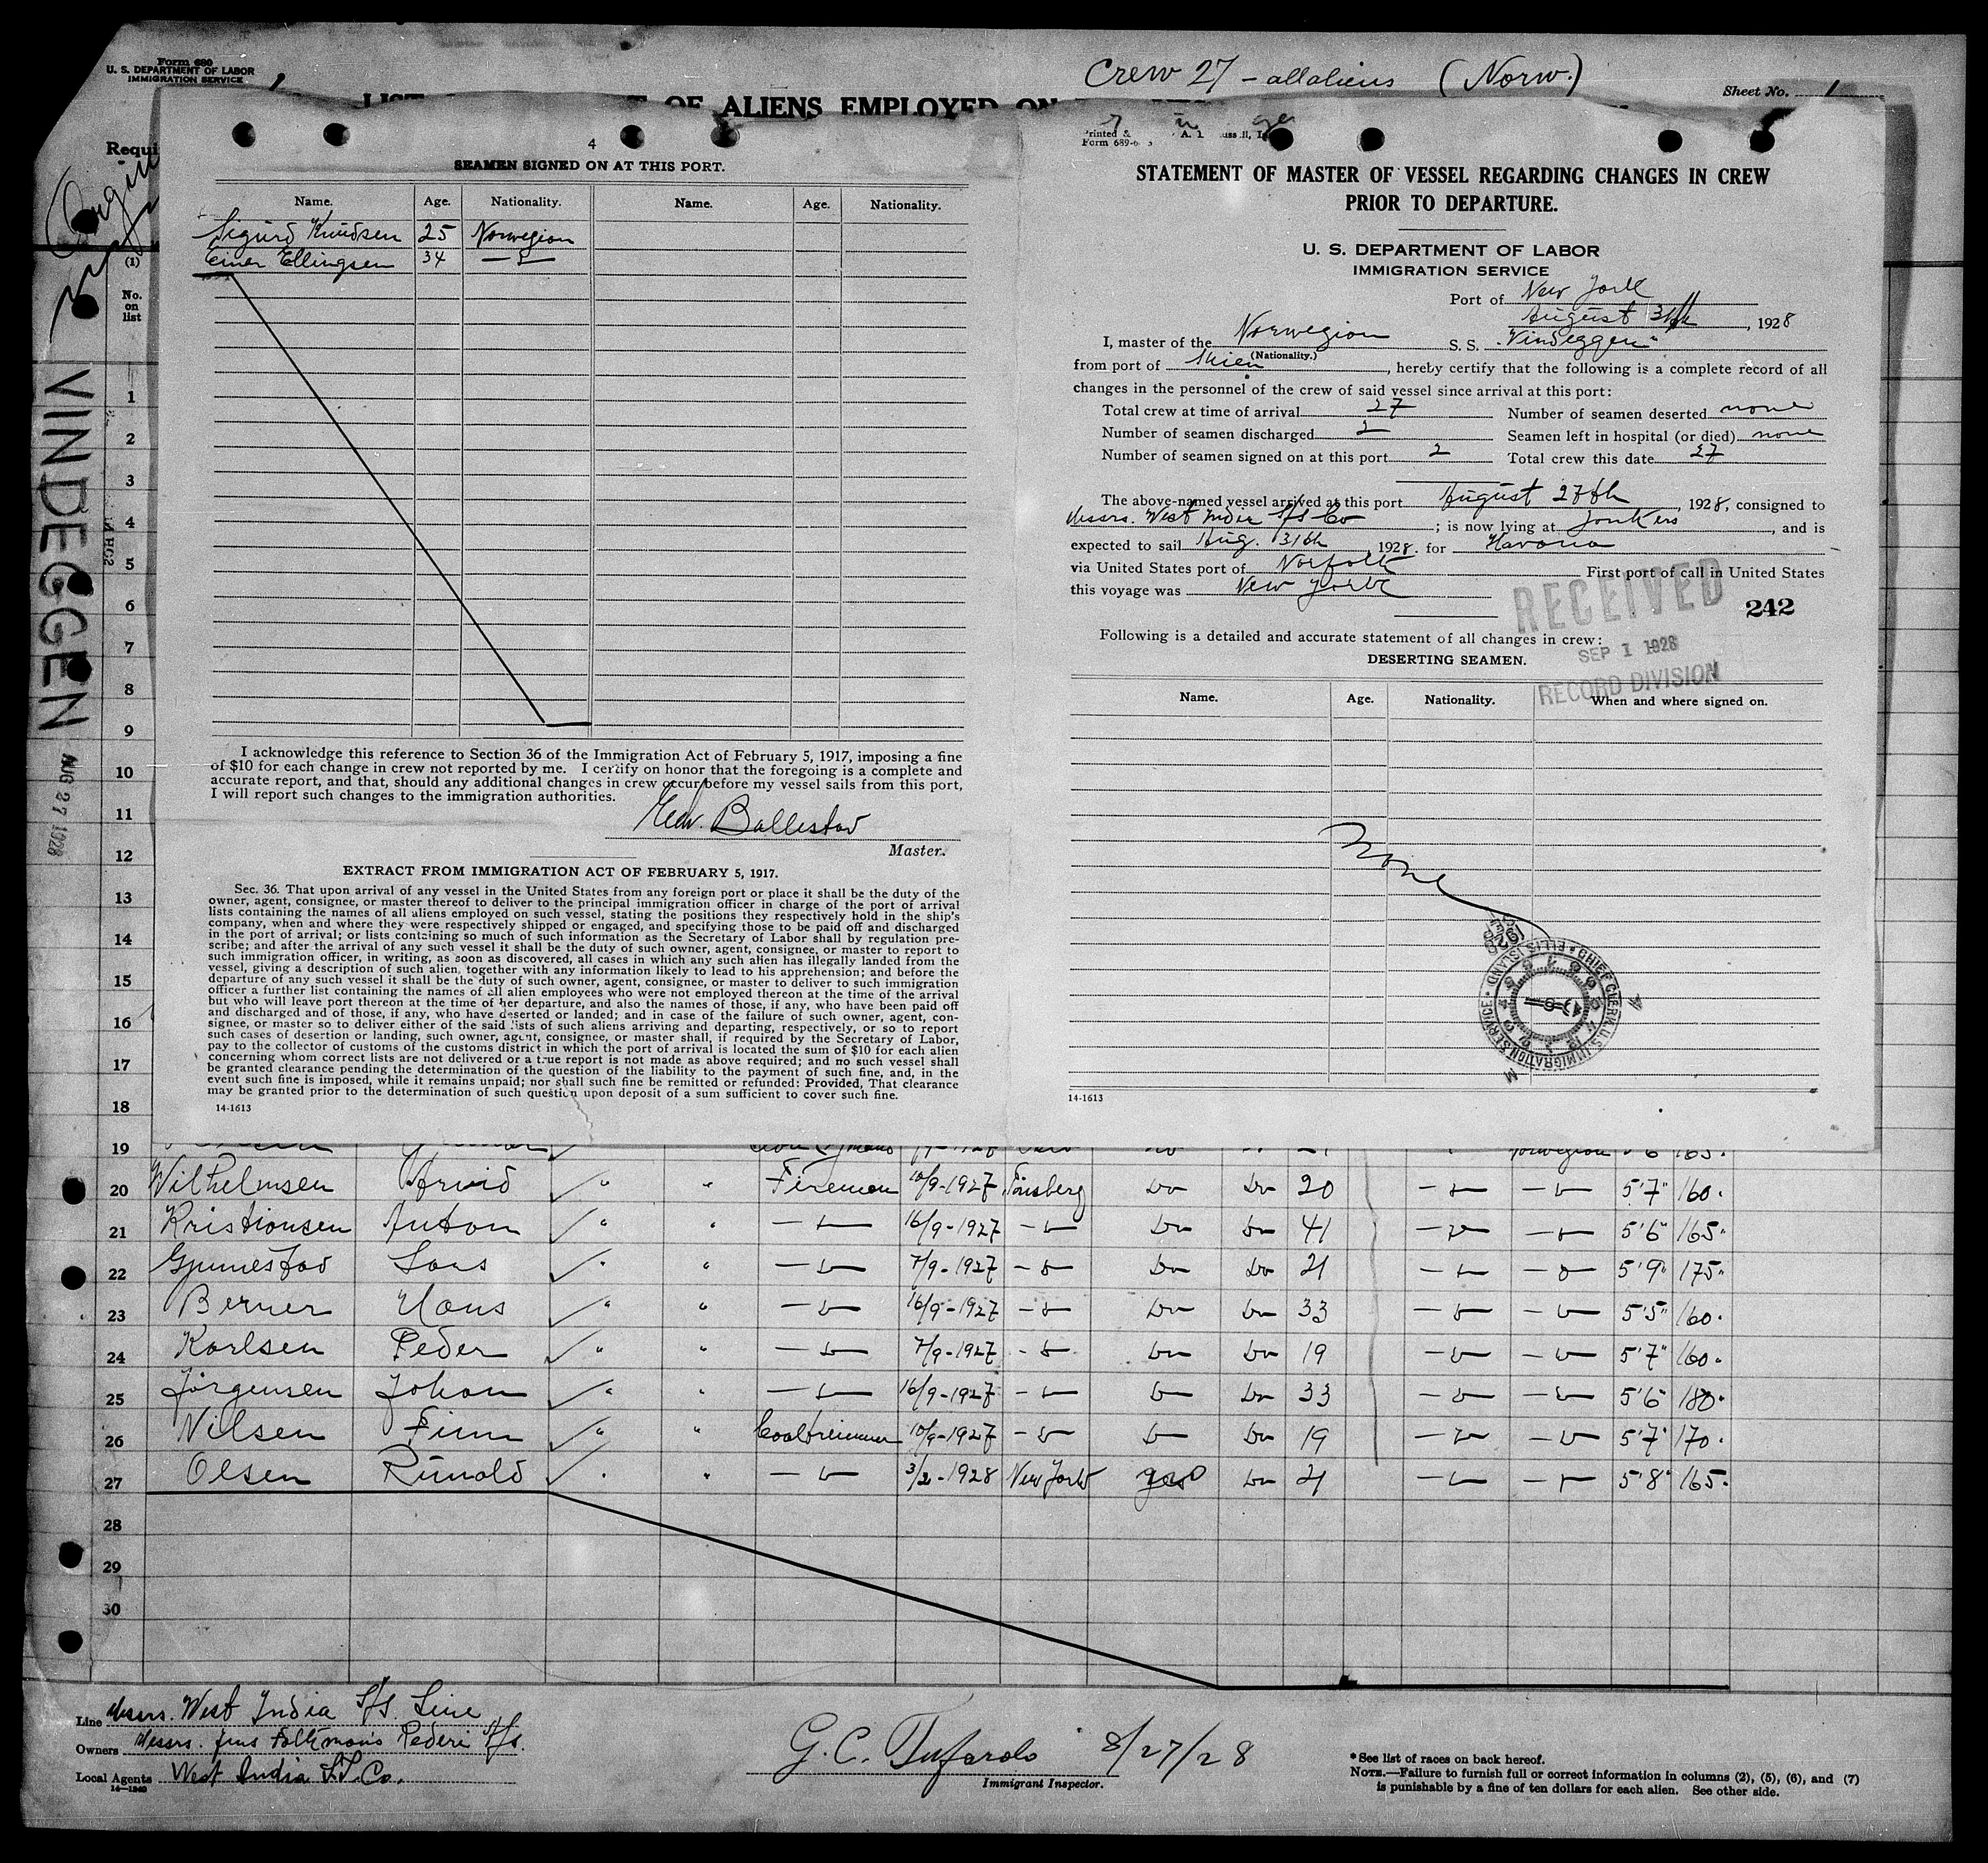 Form 680
U. S. DEPARTMENT OF LABOR
IMMIGRATION SERVICE
Crew 27 - all aliens (Norw.)
Sheet No. 1
OF ALIENS EMPLOYED ON
Requi
(1)
No.
on
list
VINDEGGEN
AUG 27 1928
4
SEAMEN SIGNED ON AT THIS PORT.
Name. Age. Nationality. Name. Age. Nationality.
Sigurd Knudsen 25 Norwegian
Einar Ellingsen 34
I acknowledge this reference to Section 36 of the Immigration Act of February 5, 1917, imposing a fine
of $10 for each change in crew not reported by me. I certify on honor that the foregoing is a complete and
accurate report, and that, should any additional changes in crew occur before my vessel sails from this port,
I will report such changes to the immigration authorities.
Master.
EXTRACT FROM IMMIGRATION ACT OF FEBRUARY 5, 1917.
Sec. 36. That upon arrival of any vessel in the United States from any foreign port or place it shall be the duty of the
owner, agent, consignee, or master thereof to deliver to the principal immigration officer in charge of the port of arrival
lists containing the names of all aliens employed on such vessel, stating the positions they respectively hold in the ship's
company, when and where they were respectively shipped or engaged, and specifying those to be paid off and discharged
in the port of arrival; or lists containing so much of such information as the Secretary of Labor shall by regulation pre-
scribe; and after the arrival of any such vessel it shall be the duty of such owner, agent, consignee, or master to report to
such immigration officer, in writing, as soon as discovered, all cases in which any such alien has illegally landed from the
vessel, giving a description of such alien, together with any information likely to lead to his apprehension; and before the
departure of any such vessel it shall be the duty of such owner, agent, consignee, or master to deliver to such immigration
officer a further list containing the names of all alien employees who were not employed thereon at the time of the arrival
but who will leave port thereon at the time of her departure, and also the names of those, if any, who have been paid off
and discharged and of those, if any, who have deserted or landed; and in case of the failure of such owner, agent, con-
signee, or master so to deliver either of the said lists of such aliens arriving and departing, respectively, or so to report
such cases of desertion or landing, such owner, agent, consignee, or master shall, if required by the Secretary of Labor,
pay to the collector of customs of the customs district in which the port of arrival is located the sum of $10 for each alien
concerning whom correct lists are not delivered or a true report is not made as above required; and no such vessel shall
be granted clearance pending the determination of the question of the liability to the payment of such fine, and, in the
event such fine is imposed, while it remains unpaid; nor shall such fine be remitted or refunded: Provided, That clearance
may be granted prior to the determination of such question upon deposit of a sum sufficient to cover such fine.
14-1613
Form 689
STATEMENT OF MASTER OF VESSEL REGARDING CHANGES IN CREW
PRIOR TO DEPARTURE.
U. S. DEPARTMENT OF LABOR
IMMIGRATION SERVICE
Port of New York
August 31th, 1928
I, master of the Norwegian S. S. "Vindeggen"
(Nationality.)
from port of Skien, hereby certify that the following is a complete record of all
changes in the personnel of the crew of said vessel since arrival at this port:
Total crew at time of arrival 27 Number of seamen deserted none
Number of seamen discharged 2 Seamen left in hospital (or died) none
Number of seamen signed on at this port 2 Total crew this date 27
The above-named vessel arrived at this port August 27th, 1928, consigned to
Messrs. West India S/S Co; is now lying at Yonkers, and is
expected to sail Aug. 31th 1928. for Havana
via United States port of Norfolk First port of call in United States
this voyage was New York
RECEIVED
SEP 1 1928
RECORD DIVISION
242
Following is a detailed and accurate statement of all changes in crew:
DESERTING SEAMEN.
Name. Age. Nationality. When and where signed on.
None
CHIEF CLERK, U.S. IMMIGRATION SERVICE · ELLIS ISLAND
14-1613
1
2
3
4
5
6
7
8
9
10
11
12
13
14
15
16
17
18
19
20 Wilhelmsen Arvid " " Fireman 10/9-1927 Tönsberg Do Do 20 5'7" 160.
21 Kristiansen Anton " " 16/9-1927 Do Do 41 5'6" 165.
22 Lars " " 7/9-1927 Do Do 21 5'9" 175.
23 Berner Hans " " 16/9-1927 Do Do 33 5'5" 160.
24 Karlsen Peder " " 7/9-1927 Do Do 19 5'7" 160.
25 Jörgensen Johan " " 16/9-1927 Do 33 5'6" 180.
26 Nilsen Finn " " Coaltrimmer 10/9-1927 Do 19 5'7" 170.
27 Olsen Runald " " 3/2-1928 New York Do 21 5'8" 165.
28
29
30
Line Messrs. West India S/S. Line
Owners Messrs. Rederi A/S.
Local Agents West India S.S. Co.
14-1240
G. C. 8/27/28
Immigrant Inspector.
* See list of races on back hereof.
NOTE.—Failure to furnish full or correct information in columns (2), (5), (6), and (7)
is punishable by a fine of ten dollars for each alien. See other side.